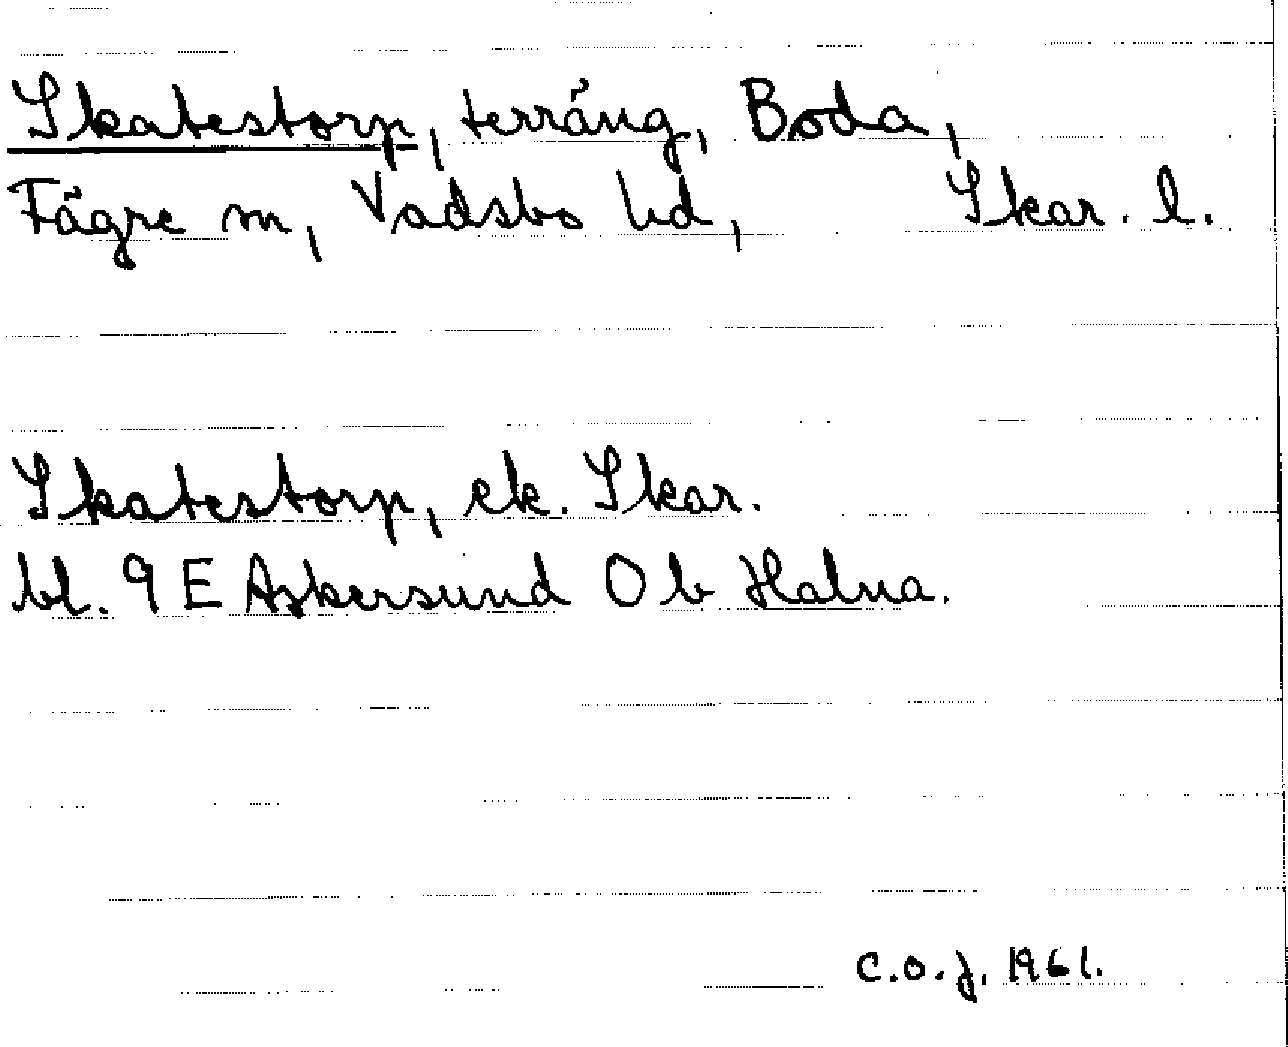 Skatestorp, terräng, Boda,
Fägre sn, Vadsbo hd, Skar. l.
Skatestorp, ek. Skar.
bl. 9 E Askersund 0 b Halna.
C.O.J. 1961.